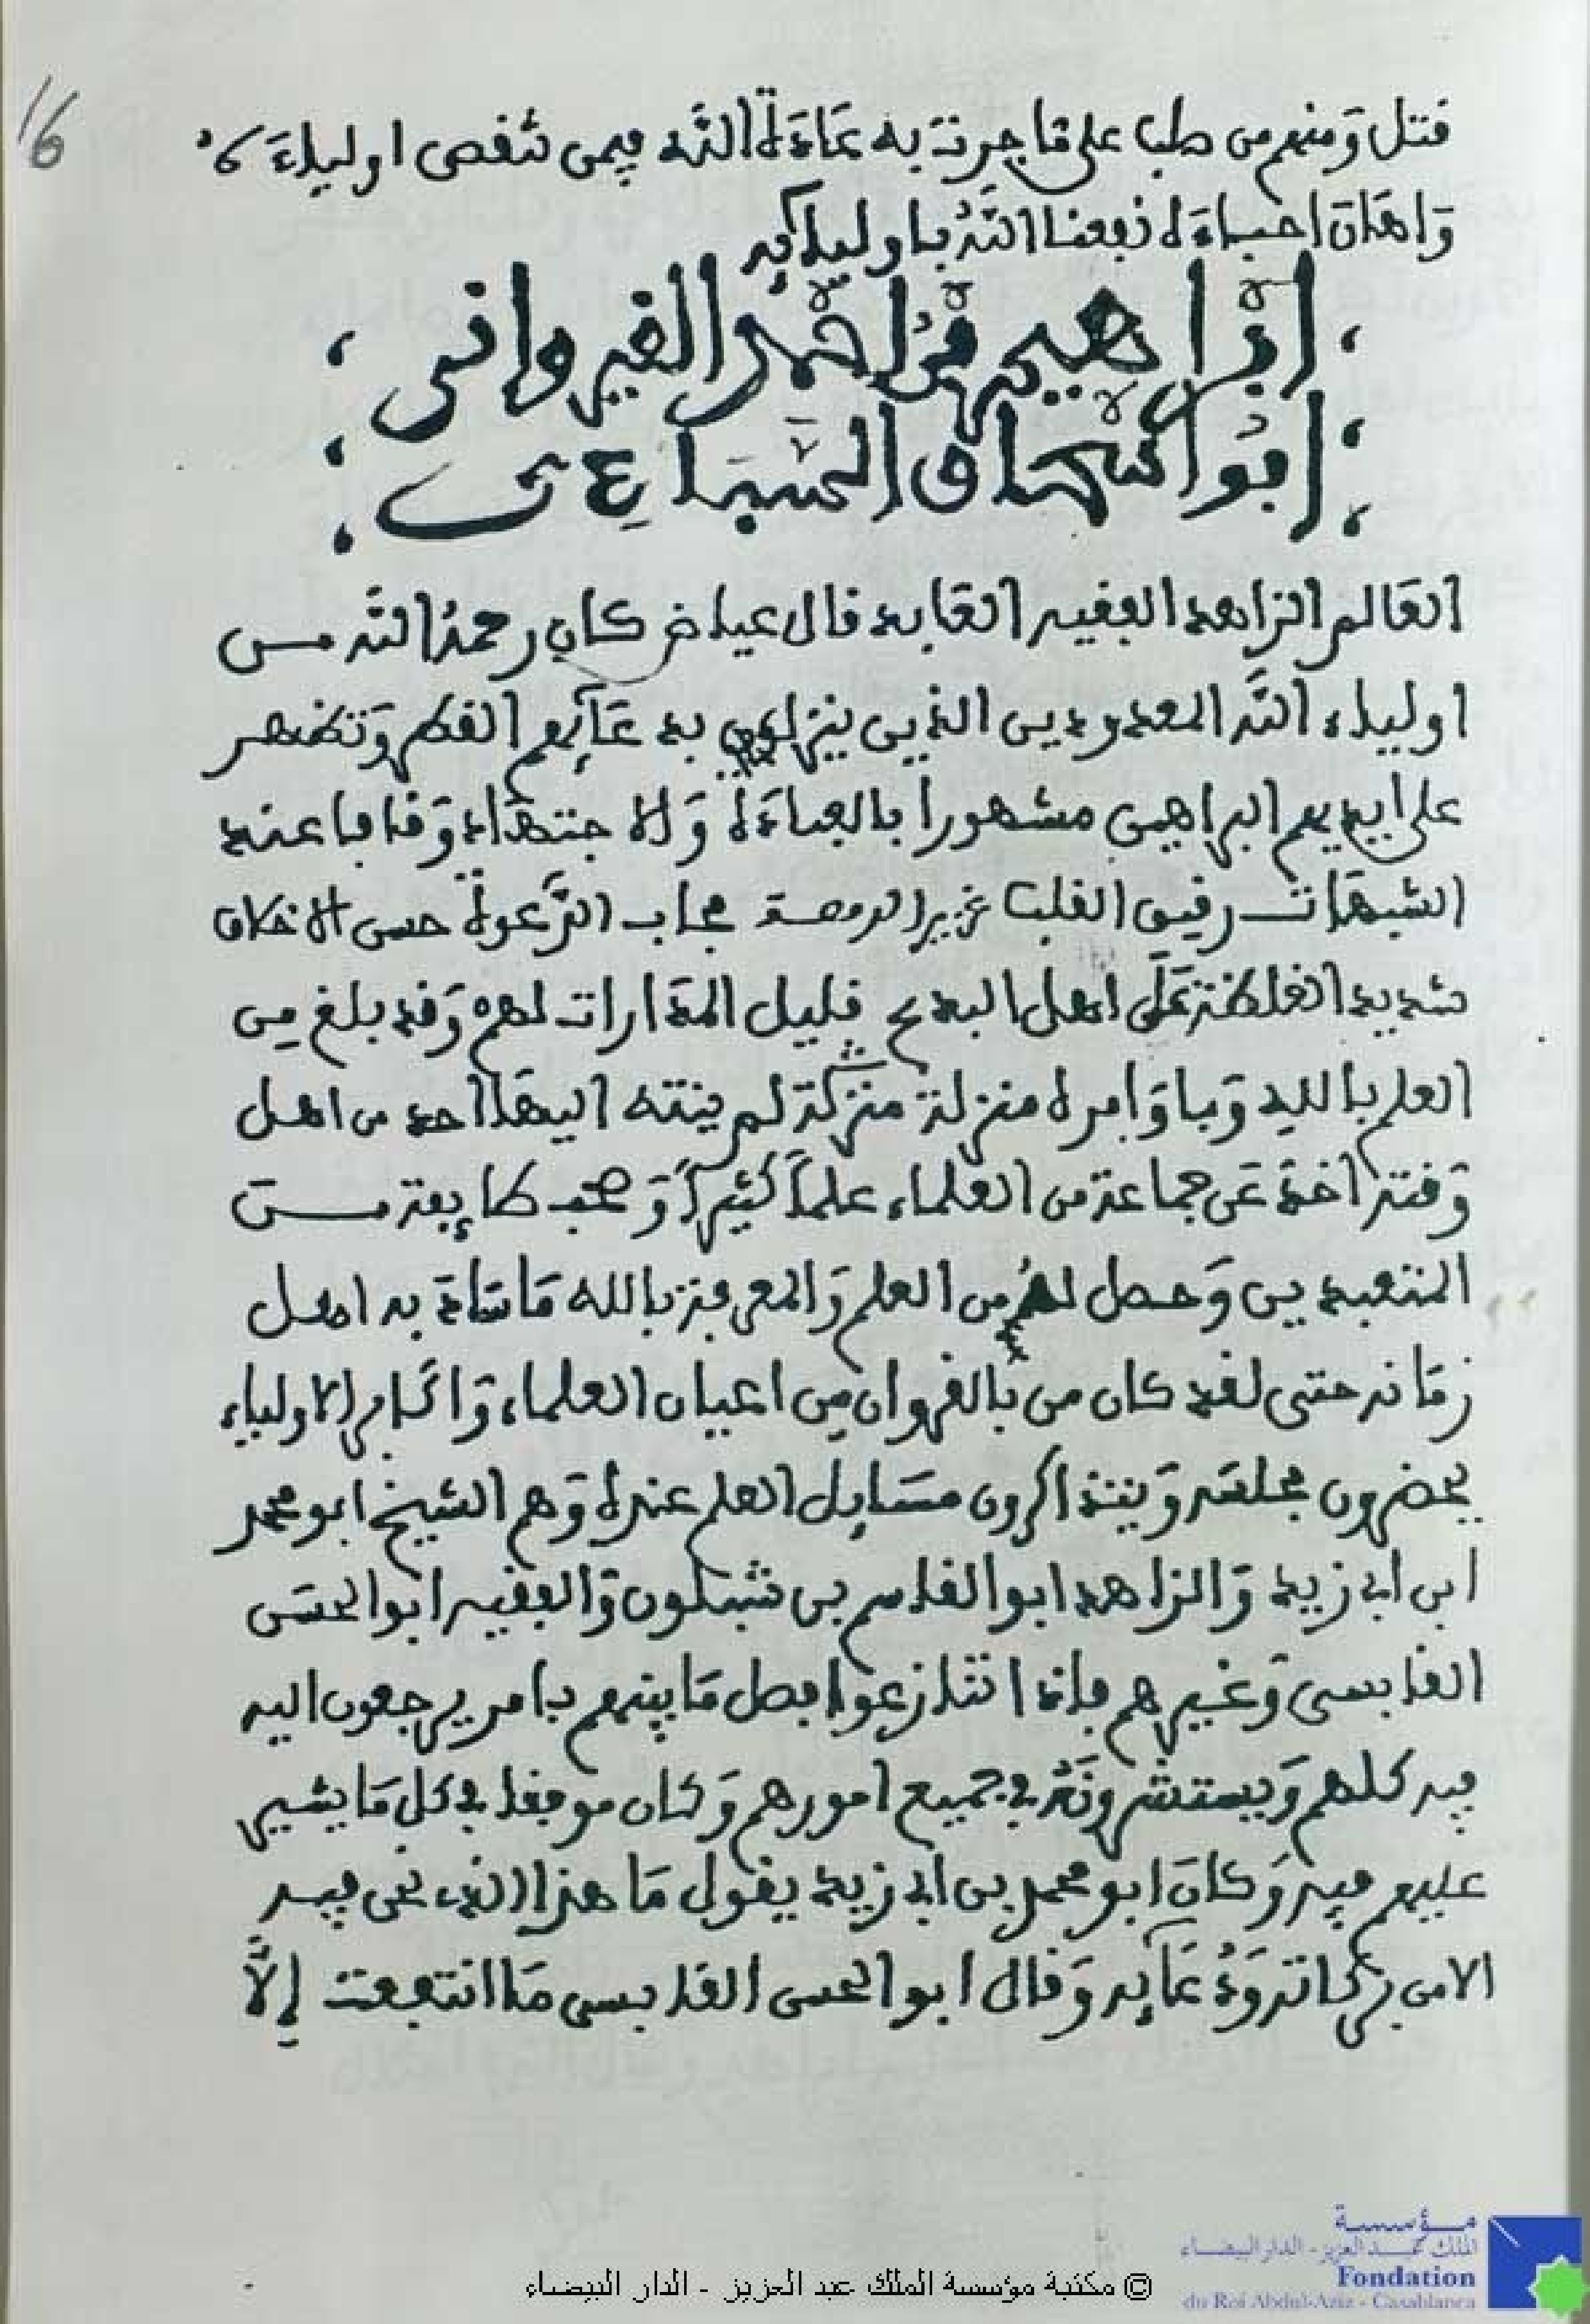 16
قتل ومنهم من صلب على ما جرت به عادة الله فيمن تنقص اولياءه
واهان احباءه نفعنا الله باوليائه
ابراهيم بن احمد القيرواني
ابو اسحاق السبائي
العالم الزاهد الفقيه العابد قال عياض كان رحمه الله من
اولياء الله المعدودين الذين ينزل بدعائهم القطر وتظهر
على ايديهم البراهين مشهورا بالعبادة والاجتهاد وقافا عند
الشبهات رقيق القلب غزير الدمعة مجاب الدعوة حسن الاخلاق
شديد الغلظة على اهل البدع قليل المدارات لهم وقد بلغ من
العلم بالله وباوامره منزلة لم ينته اليها احد من اهل
وقته اخذ عن جماعة من العلماء علما كثيرا وصحب طايفة من
المتعبدين وحصل له من العلم والمعرفة بالله ما ساد به اهل
زمانه حتى لقد كان من بالقيروان من اعيان العلماء واكابر الاولياء
يحضرون مجلسه ويتذاكرون مسايل العلم عنده وهم الشيخ ابو محمد
ابن ابي زيد والزاهد ابو القاسم بن شبلون والفقيه ابو الحسن
القابسي وغيرهم فاذا تنازعوا فصل ما بينهم بامر يرجعون اليه
فيه كلهم ويستشرونه في جميع امورهم وكان موفقا في كل ما يشير
عليهم فيه وكان ابو محمد بن ابي زيد يقول ما هذا الذي نحن فيه
الا من بركاته ودعايه وقال ابو الحسن القابسي ما انتفعت الا
مؤسسة
الملك عبد العزيز - الدار البيضاء
Fondation
du Roi Abdul-Aziz - Casablanca
© مكتبة مؤسسة الملك عبد العزيز - الدار البيضاء